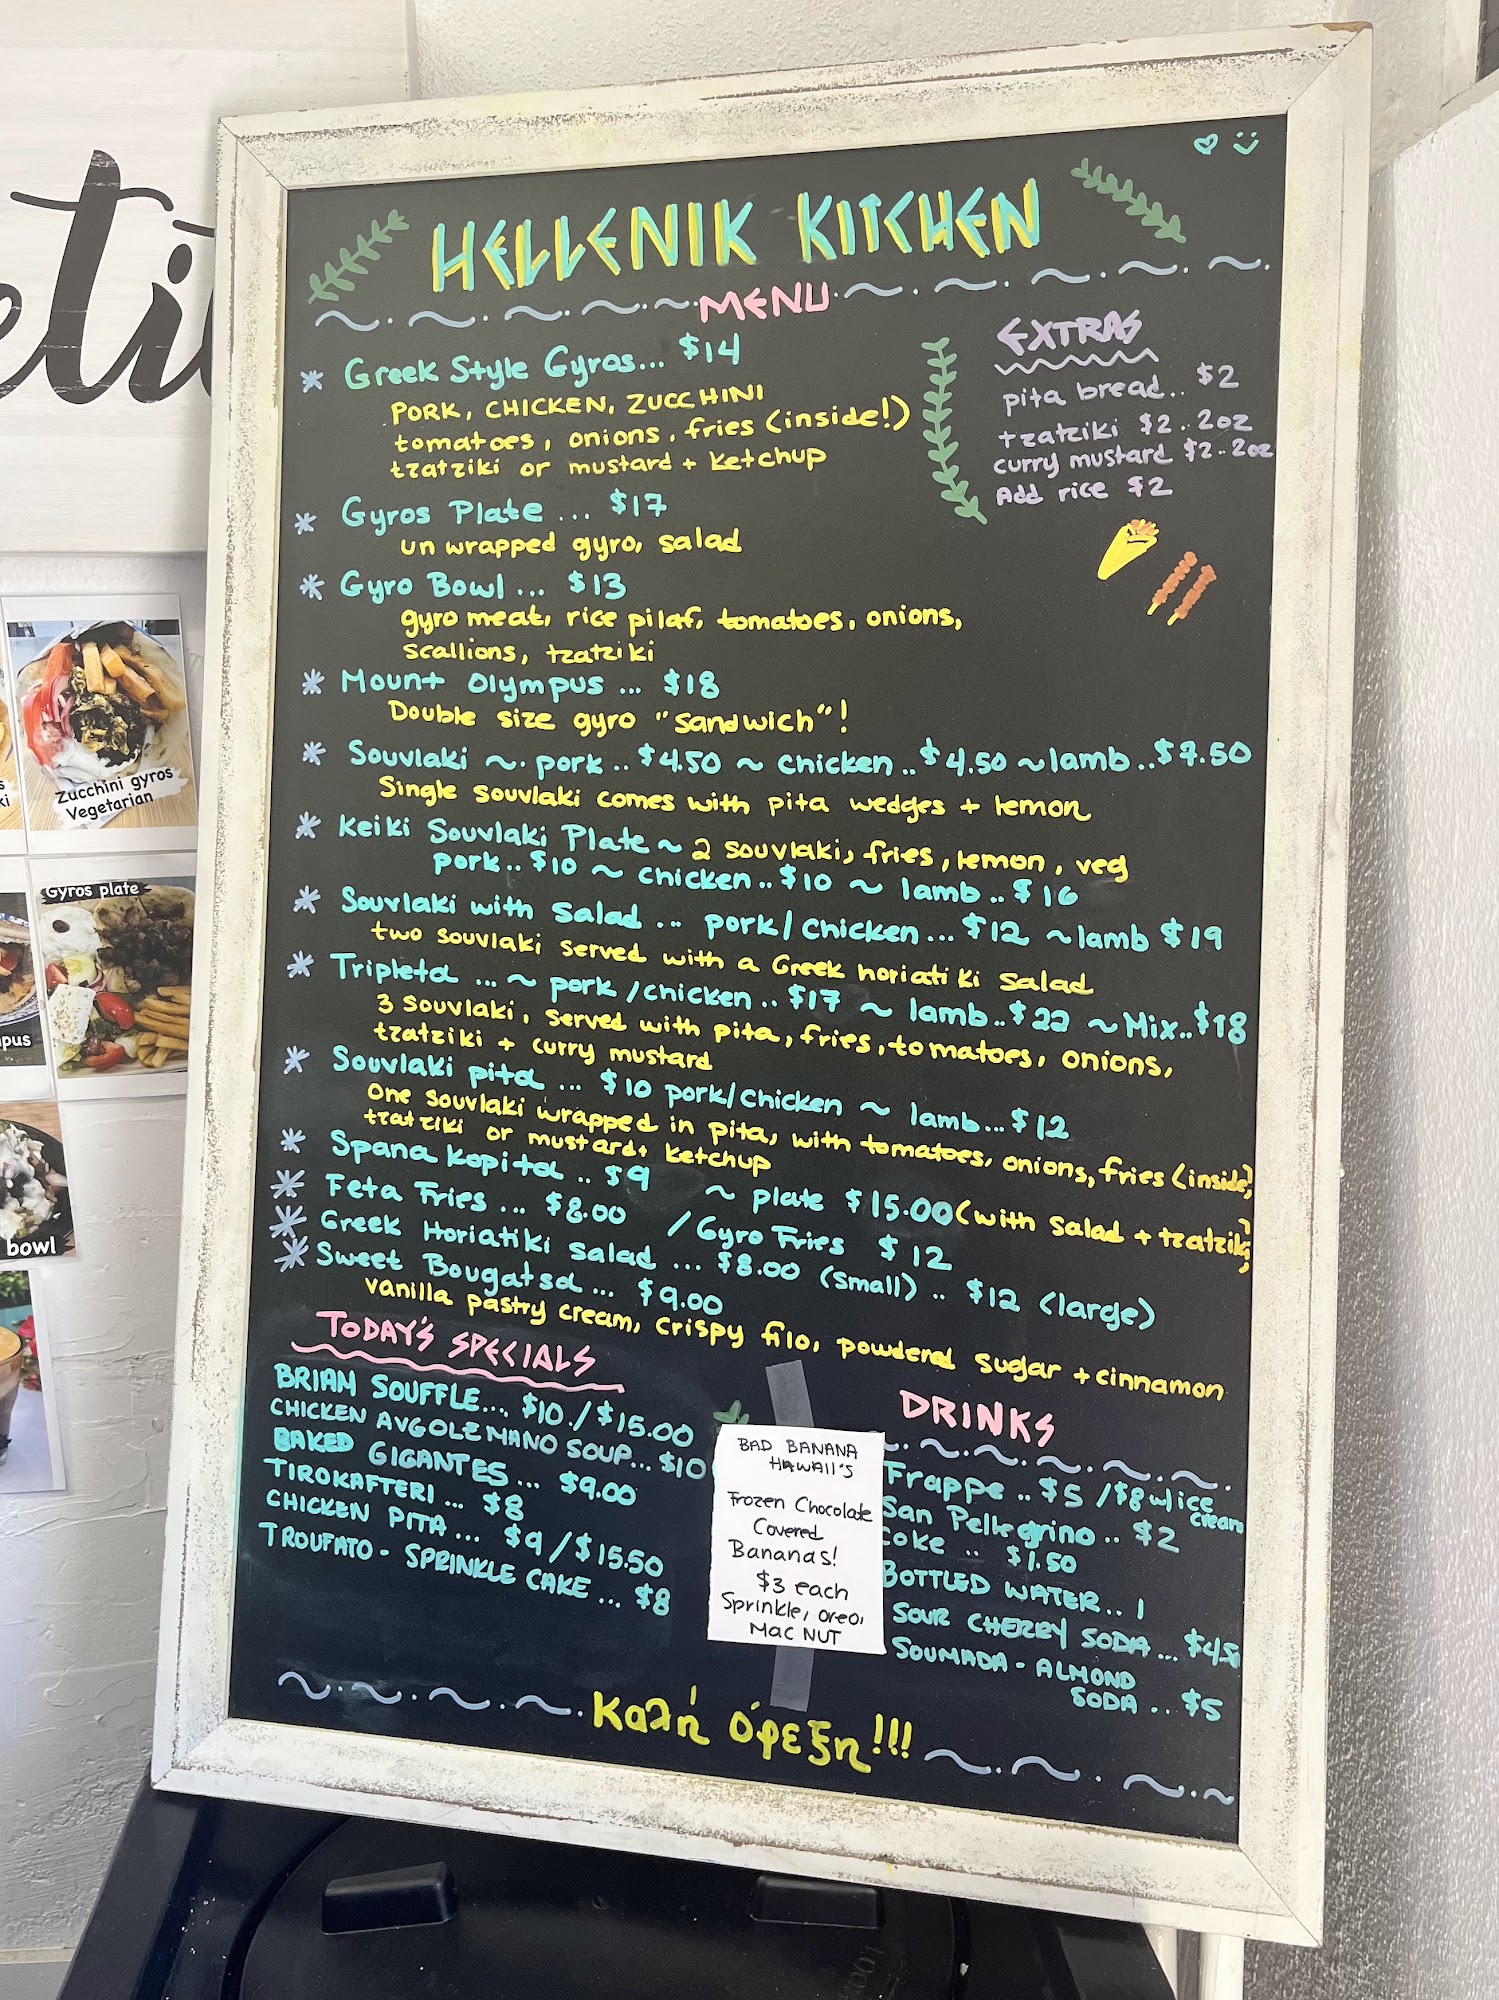 HELLENIK KITCHEN
MENU
* Greek Style Gyros... $14
PORK, CHICKEN, ZUCCHINI
tomatoes, onions, fries (inside!)
tzatziki or mustard + ketchup
* Gyros Plate ... $17
un wrapped gyro, salad
* Gyro Bowl ... $13
gyro meat, rice pilaf, tomatoes, onions,
scallions, tzatziki
* Mount Olympus ... $18
Double size gyro "sandwich"!
* Souvlaki ~. pork .. $4.50 ~ chicken .. $4.50 ~ lamb .. $7.50
Single souvlaki comes with pita wedges + lemon
* Keiki Souvlaki Plate ~ 2 souvlaki, fries, lemon, veg
pork.. $10 ~ chicken.. $10 ~ lamb .. $16
* Souvlaki with salad ... pork/chicken... $12 ~ lamb $19
two souvlaki served with a Greek horiatiki salad
* Tripleta ... ~ pork/chicken.. $17 ~ lamb.. $22 ~ Mix.. $18
3 souvlaki, served with pita, fries, tomatoes, onions,
tzatziki + curry mustard
* Souvlaki pita ... $10 pork/chicken ~ lamb... $12
one souvlaki wrapped in pita, with tomatoes, onions, fries (inside)
tzatziki or mustard + ketchup
* Spanakopita .. $9 ~ plate $15.00 (with salad + tzatziki)
* Feta Fries ... $8.00 / Gyro Fries $12
* Greek Horiatiki Salad ... $8.00 (small) .. $12 (large)
* Sweet Bougatsa ... $9.00
vanilla pastry cream, crispy filo, powdered sugar + cinnamon
EXTRAS
pita bread.. $2
tzatziki $2..2oz
curry mustard $2..2oz
Add rice $2
TODAY'S SPECIALS
BRIAM SOUFFLE.... $10./$15.00
CHICKEN AVGOLEMANO SOUP... $10
BAKED GIGANTES ... $9.00
TIROKAFTERI ... $8
CHICKEN PITA ... $9 / $15.50
TROUFATO - SPRINKLE CAKE ... $8
BAD BANANA
HAWAII'S
Frozen Chocolate
Covered
Bananas!
$3 each
Sprinkle, oreo,
Mac NUT
DRINKS
Frappe .. $5 / $8 w/ice
cream
San Pellegrino .. $2
Coke .. $1.50
BOTTLED WATER.. 1
SOUR CHERRY SODA ... $4.50
SOUMADA - ALMOND
SODA .. $5
Καλή όρεξη!!!
Zucchini gyros
Vegetarian
Gyros plate
bowl